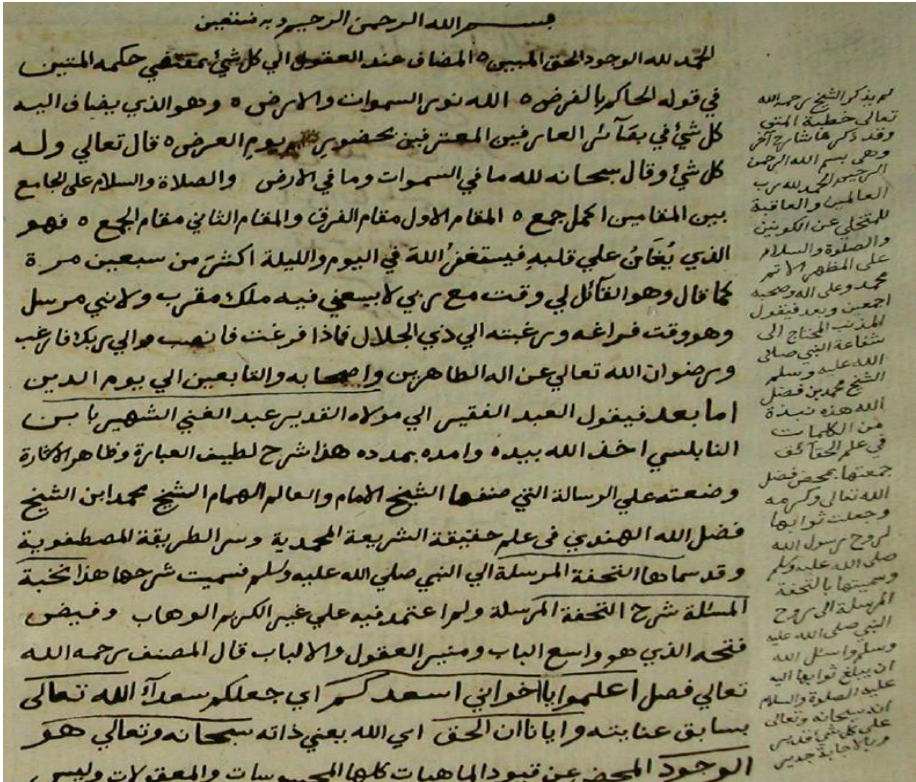 بسم الله الرحمن الرحيم وبه نستعين
الحمد لله الوجود الحق المبين ٥ المضاف عند العقول الي كل شئ بمقتضي حكمه المتين
في قوله الحاكم بالفرض ٥ الله نور السموات والارض ٥ وهو الذي يضاف اليه
كل شئ في بقآئر العارفين المعترفين بحضور يوم العرض ٥ قال تعالي وله
كل شئ وقال سبحانه لله ما في السموات وما في الارض والصلاة والسلام على الجامع
بين المقامين اكمل جمع ٥ المقام الاول مقام الفرق والمقام الثاني مقام الجمع ٥ فهو
الذي يُغَانُ علي قلبهِ فيستغفرُ اللهَ في اليوم والليلة اكثر من سبعين مرة
كما قال وهو القآئل لي وقت مع ربي لا يسعني فيه ملك مقرب ولا نبي مرسل
وهو وقت فراغه ورغبته الي ذي الجلال فاذا فرغت فانصب والي ربك فارغب
ورضوان الله تعالي عن اله الطاهرين واصحابه والتابعين الي يوم الدين
اما بعد فيقول العبد الفقير الي مولاه القدير عبد الغني الشهير بابن
النابلسي اخذ الله بيده وامده بمدده هذا شرح لطيف العبارة وظاهر الاشارة
وضعته علي الرسالة التي صنفها الشيخ الامام والعالم الهمام الشيخ محمد ابن الشيخ
فضل الله الهندي في علم حقيقة الشريعة المحمدية وسر الطريقة المصطفوية
وقد سماها التحفة المرسلة الي النبي صلي الله عليه وسلم فسميت شرحها هذا نخبة
المسئلة شرح التحفة المرسلة ولم اعتمد فيه علي غير الكريم الوهاب وفيض
فتحه الذي هو واسع الباب ومنير العقول والالباب قال المصنف رحمه الله
تعالي فصل اعلموا يا اخواني اسعدكم اي جعلكم سعدآء الله تعالى
بسابق عنايته وايانا ان الحق اي الله يعني ذاته سبحانه وتعالي هو
الوجود المحض عن قيود الماهيات كلها المحسوسات والمعقولات وليس
لم يذكر الشيخ رحمه الله
تعالى خطبة المتن
وقد ذكرها شارح آخر
وهي بسم الله الرحمن
الرحيم الحمد لله رب
العالمين والعاقبة
للمتخلي عن الكونين
والصلوة والسلام
على المظهر الاتم
محمد وعلى اله وصحبه
اجمعين وبعد فيقول
المذنب المحتاج الى
شفاعة النبي صلى
الله عليه وسلم
الشيخ محمد بن فضل
الله هذه نبذة
من الكلمات
في علم الحقآئق
جمعتها بمحض فضل
الله تعالى وكرمه
وجعلت ثوابها
لروح رسول الله
صلى الله عليه وسلم
وسميتها بالتحفة
المرسلة الى روح
النبي صلى الله عليه
وسلم واسئل الله
ان يبلغ ثوابها اليه
عليه الصلوة والسلام
انه سبحانه وتعالى
على كل شئ قدير
وبالاجابة جدير